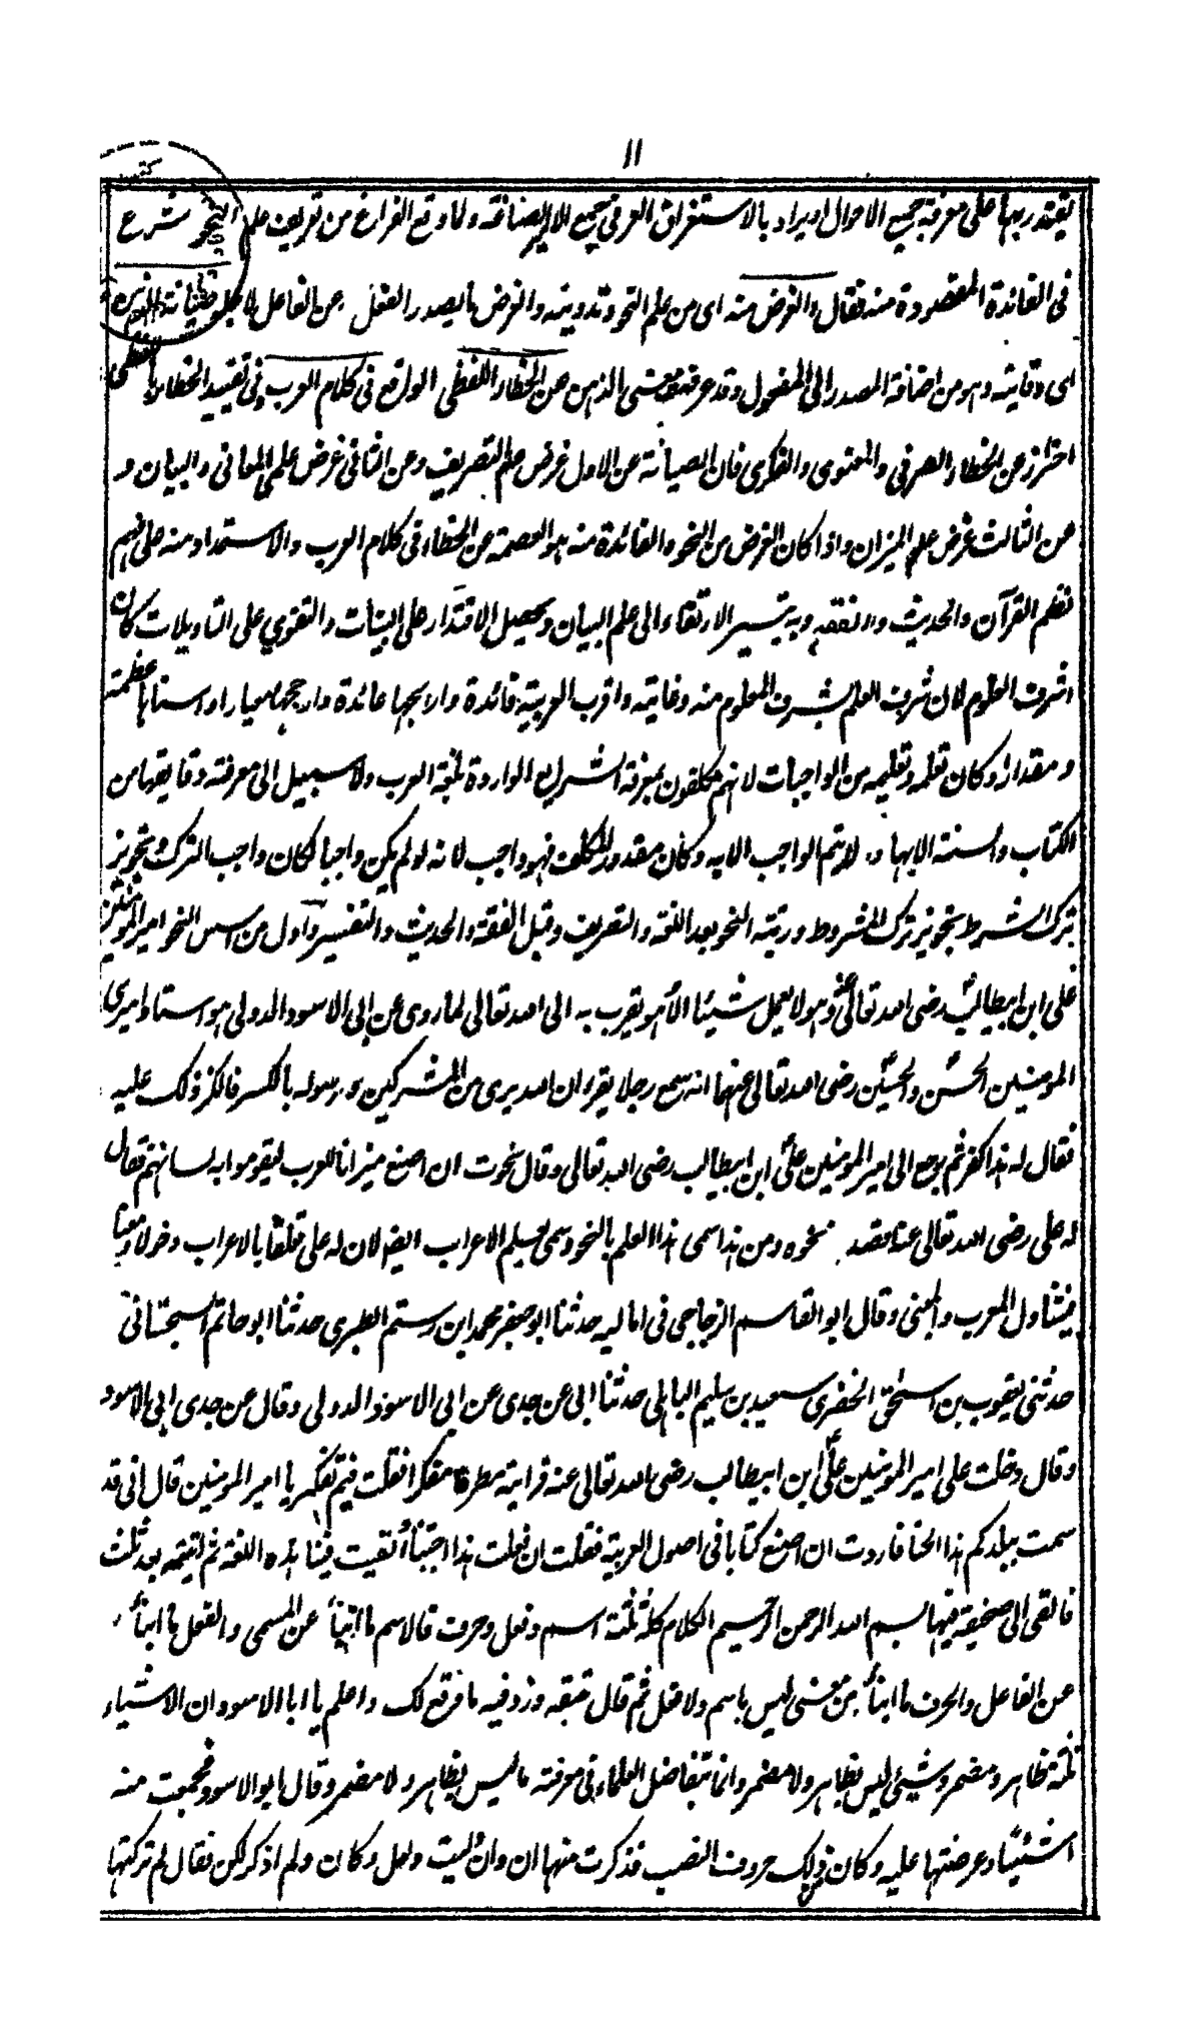 ١١
يقتدر بها على معرفة جميع الاحوال او يراد بالاستغراق العرفي جميع الامير الصناعة ولما وقع الفراغ من تعريف علم النحو شرع
فى الفائدة المقصودة منه فقال والغرض منه اى من علم النحو وتدوينه والغرض ما يصدر الفعل عن الفاعل لاجله صيانة الذهن
اى وقايته وهو من اضافة المصدر الى المفعول وقد عرفت معنى الذهن عن الخطاء اللفظى الواقع فى كلام العرب وفى تقييد الخطاء باللفظى
احتراز عن الخطاء الصرفي والمعنوى والفكرى فان الصيانة عن الاول غرض علم التصريف وعن الثانى غرض علمى المعانى والبيان و
عن الثالث غرض علم الميزان واذا كان الغرض من النحو والفائدة منه هو العصمة عن الخطاء فى كلام العرب والاستمداد منه على فهم
نظم القرآن والحديث والفقه وبه يتيسر الارتقاء الى علم البيان ويحصل الاقتدار على البينات والتقوي على التاويلات كان
اشرف العلوم لان شرف العلم بشرف المعلوم منه وغايته واقرب العربية فائدة واربحها عائدة وارجحها معيارا واسناها عظمة
ومقدارا وكان تعلمه وتعليمه من الواجبات لانهم مكلفون بمعرفة الشرايع الواردة بلغة العرب ولا سبيل الى معرفته دقايقها من
الكتاب والسنة الا بها و لا يتم الواجب الا به وكان مقدور المكلف فهو واجب لانه لو لم يكن واجبا لكان واجب الترك وتجويز
ترك الشرط تجويز ترك المشروط ورتبة النحو بعد اللغة والتصريف وقبل الفقه والحديث والتفسير واول من اسس النحو امير المومنين
على ابن ابيطالب رضى الله تعالى عنه وهو لا يعمل شيئا الا هو يقرب به الى الله تعالى لما روى عن ابى الاسود الدولى هو استاد اميرى
المومنين الحسن والحسين رضى الله تعالى عنهما انه سمع رجلا يقرء ان الله برى من المشركين ورسوله بالكسر فانكر ذلك عليه
فقال له هذا كفر ثم رجع الى امير المومنين على ابن ابيطالب رضى الله تعالى وقال نحوت ان اصنع ميزانا للعرب ليقوموا به لسانهم فقال
له على رضى الله تعالى عنه اقصد نحوه ومن هذا سمى هذا العلم بالنحو وسمى بعلم الاعراب ايضا لان له على تعلقا بالاعراب دخولا
فيتناول المعرب والمبنى وقال ابو القاسم الزجاجى فى اماليه حدثنا ابو جعفر محمد ابن رستم الطبرى حدثنا ابو حاتم السجستانى
حدثنى يعقوب بن اسحق الحضرى سعيد بن سليم الباهلى حدثنا ابى عن جدى عن ابى الاسود الدولى وقال عن جدى ابى الاسود
وقال دخلت على امير المومنين على ابن ابيطالب رضى الله تعالى عنه فرايته مطرقا مفكرا فقلت فيم تفكر يا امير المومنين قال انى قد
سمعت ببلدكم هذا لحنا فاردت ان اصنع كتابا فى اصول العربية فقلت ان فعلت هذا احييتنا أبقيت فينا هذه اللغة ثم اتيته بعد ثلث
فالقى الى صحيفة فيها بسم الله الرحمن الرحيم الكلام كله ثلثة اسم وفعل وحرف فالاسم ما انبأ عن المسمى والفعل ما انبأ
عن الفاعل والحرف ما انبأ عن معنى ليس باسم ولا فعل ثم قال تتبعه وزد فيه ما وقع لك واعلم يا ابا الاسود ان الاشياء
ثلثة ظاهر ومضمر وشيئ ليس بظاهر ولا مضمر وانما تتفاضل العلماء فى معرفته ما ليس بظاهر ولا مضمر وقال ابو الاسود فجمعت منه
اشياء وعرضتها عليه وكان ذلك حروف النصب فذكرت منها ان وان وليت ولعل وكان ولم اذكر لكن فقال لم تركتها